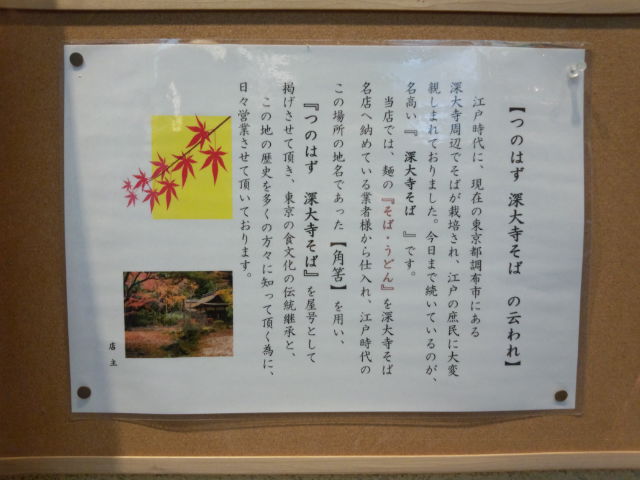 【つのはず 深大寺そば の云われ】
江戸時代に、現在の東京都調布市にある
深大寺周辺でそばが栽培され、江戸の庶民に大変
親しまれておりました。今日まで続いているのが、
名高い『 深大寺そば 』です。
当店では、麺の『そば・うどん』を深大寺そば
名店へ納めている業者様から仕入れ、江戸時代の
この場所の地名であった【角筈】を用い、
『つのはず 深大寺そば』を屋号として
掲げさせて頂き、東京の食文化の伝統継承と、
この地の歴史を多くの方々に知って頂く為に、
日々営業させて頂いております。
店主